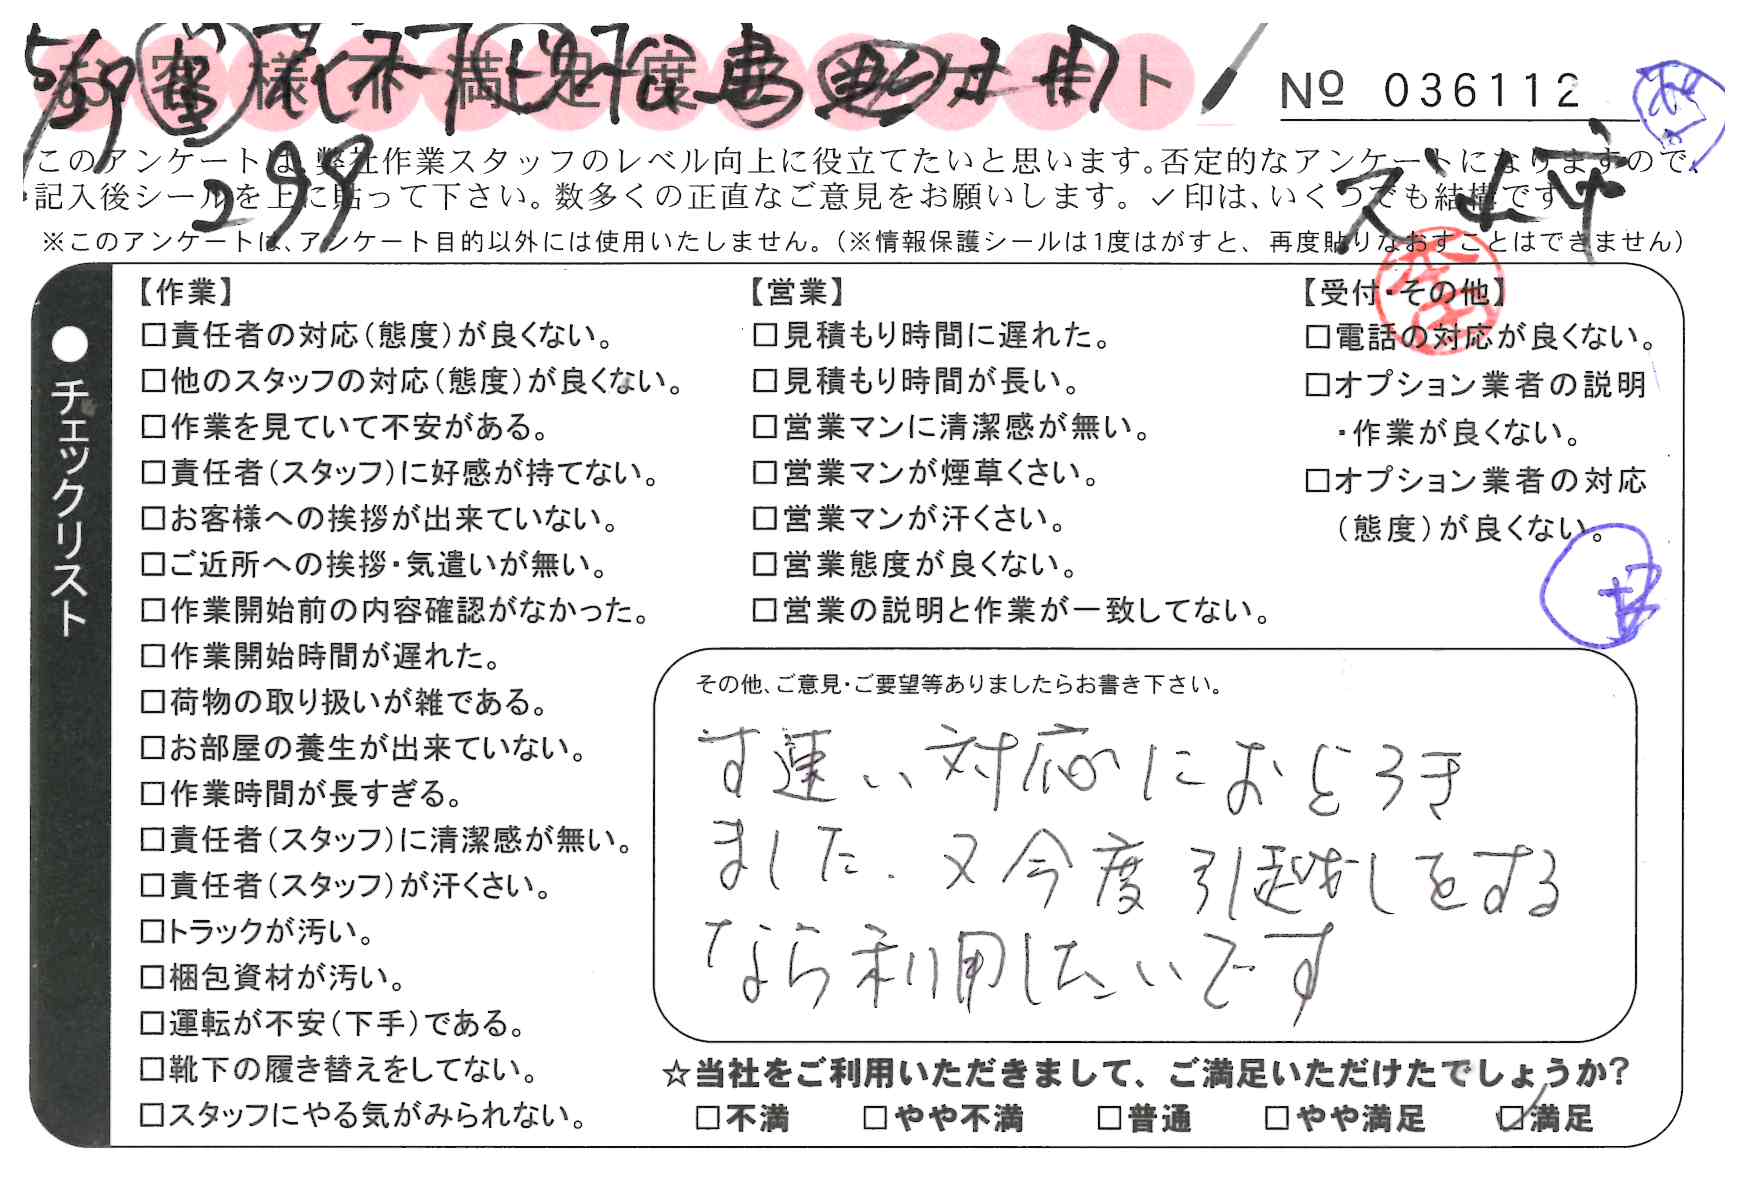 お客様不満足度アンケート
№ 036112
299
このアンケートは、弊社作業スタッフのレベル向上に役立てたいと思います。否定的なアンケートになりますので、
記入後シールを上に貼って下さい。数多くの正直なご意見をお願いします。✓印は、いくつでも結構です
※このアンケートは、アンケート目的以外には使用いたしません。（※情報保護シールは1度はがすと、再度貼りなおすことはできません）
●チェックリスト
【作業】
□責任者の対応（態度）が良くない。
□他のスタッフの対応（態度）が良くない。
□作業を見ていて不安がある。
□責任者（スタッフ）に好感が持てない。
□お客様への挨拶が出来ていない。
□ご近所への挨拶・気遣いが無い。
□作業開始前の内容確認がなかった。
□作業開始時間が遅れた。
□荷物の取り扱いが雑である。
□お部屋の養生が出来ていない。
□作業時間が長すぎる。
□責任者（スタッフ）に清潔感が無い。
□責任者（スタッフ）が汗くさい。
□トラックが汚い。
□梱包資材が汚い。
□運転が不安（下手）である。
□靴下の履き替えをしてない。
□スタッフにやる気がみられない。
【営業】
□見積もり時間に遅れた。
□見積もり時間が長い。
□営業マンに清潔感が無い。
□営業マンが煙草くさい。
□営業マンが汗くさい。
□営業態度が良くない。
□営業の説明と作業が一致してない。
【受付・その他】
□電話の対応が良くない。
□オプション業者の説明
・作業が良くない。
□オプション業者の対応
（態度）が良くない。
その他、ご意見・ご要望等ありましたらお書き下さい。
す速い対応におどろき
ました．又今度引越しをする
なら利用したいです
☆当社をご利用いただきまして、ご満足いただけたでしょうか？
□不満 □やや不満 □普通 □やや満足 ☑満足